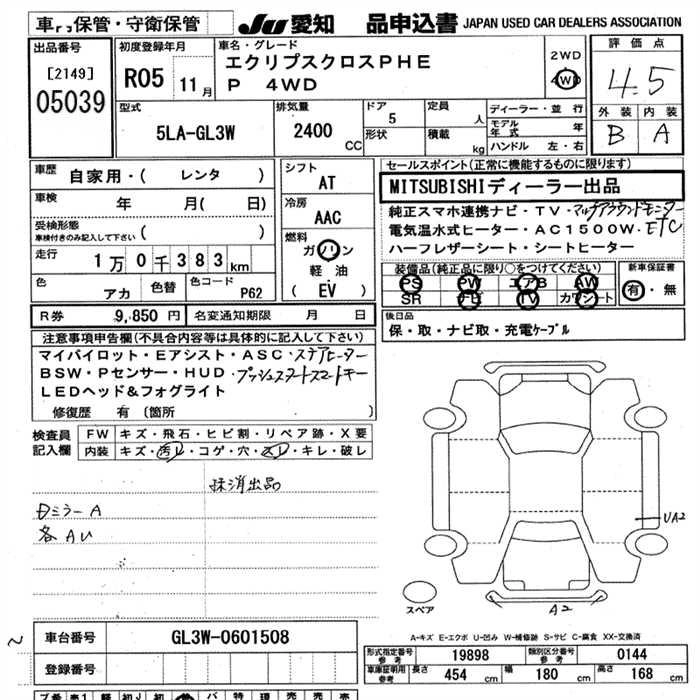 車ｹﾝ保管・守衛保管 JU 愛知 品申込書 JAPAN USED CAR DEALERS ASSOCIATION
出品番号
[2149]
05039
初度登録年月
R05 11月
車名・グレード
エクリプスクロスPHE
P 4WD
2WD
4WD
評価点
4.5
外装 内装
B A
型式
5LA-GL3W
排気量
2400 CC
ドア
5
形状
定員 人
積載 kg
ディーラー・並行
モデル年式 年
ハンドル 左・右
車歴 自家用・( レンタ )
車検 年 月( 日)
受検形態
車検付きのみ記入して下さい ( )
走行 1万0千383km
色 アカ 色替 色コード P62
シフト
AT
冷房
AAC
燃料
ガソリン
軽油
( EV )
セールスポイント(正常に機能するものに限ります)
MITSUBISHIディーラー出品
純正スマホ連携ナビ・TV・マルチアラウンドモニター
電気温水式ヒーター・AC1500W・ETC
ハーフレザーシート・シートヒーター
装備品(純正品に限り○をつけて下さい)
PS PW エアB AW
SR ナビ TV カワシート
新車保証書
有・無
R券 9,850円 名変通知期限 月 日
後日品
保・取・ナビ取・充電ケーブル
注意事項申告欄(不具合内容等は具体的に記入して下さい)
マイパイロット・Eアシスト・ASC・ステアヒーター
BSW・Pセンサー・HUD・プッシュスタートスマートキー
LEDヘッド&フォグライト
修復歴 有 (箇所 )
検査員記入欄
FW キズ・飛石・ヒビ割・リペア跡・X要
内装 キズ・汚レ・コゲ・穴・スレ・キレ・破レ
抹消出品
Dミラー A
各 AU
UA2
A2
スペア
A-キズ E-エクボ U-凹み W-補修跡 S-サビ C-腐食 XX-交換済
車台番号 GL3W-0601508
登録番号
形式指定番号 参考 19898 類別区分番号 参考 0144
車庫証明用 参考 長さ 454 cm 幅 180 cm 高さ 168 cm